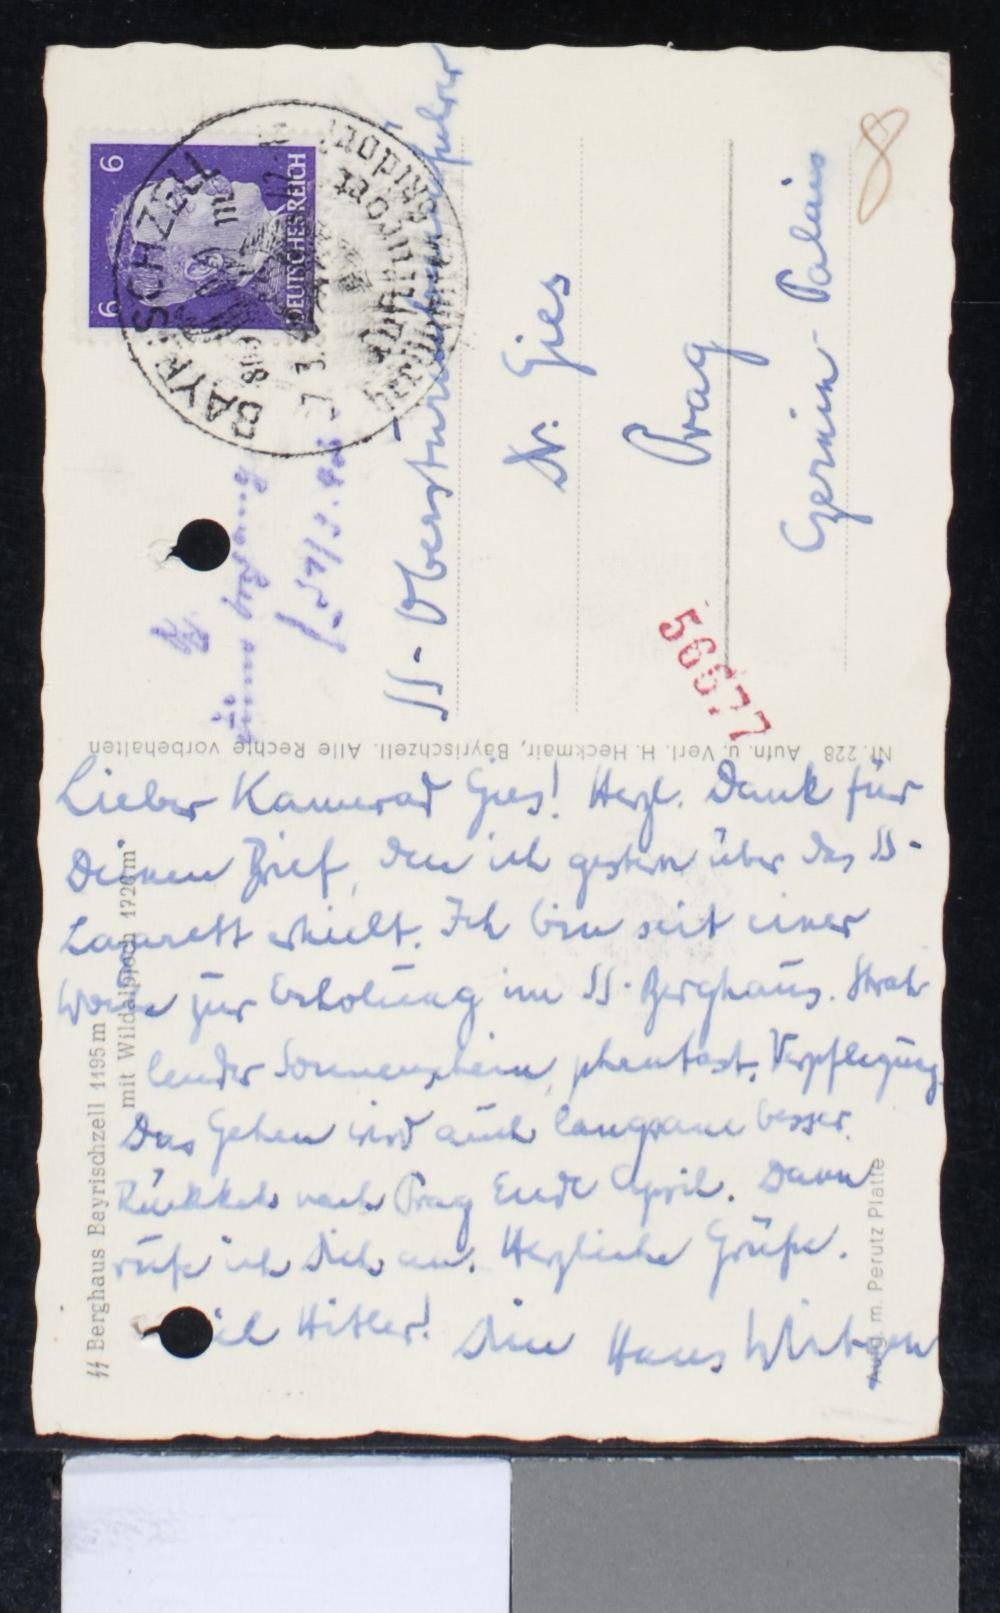 6
6
DEUTSCHES REICH
BAYRISCHZELL
SS-Obersturmbannführer
Dr. Gies
Prag
Czernin-Palais
56677
Nr. 228 Aufn. u. Verl. H. Heckmair, Bayrischzell. Alle Rechte vorbehalten
Lieber Kamerad Gies! Herzl. Dank für
Deinen Brief, den ich gestern über das SS-
Lazarett erhielt. Ich bin seit einer
Woche zur Erholung im SS-Berghaus. Strah-
lender Sonnenschein, phantast. Verpflegung.
Das Gehen wird auch langsam besser.
Rückkehr nach Prag Ende April. Dann
rufe ich Dich an. Herzliche Grüße.
Heil Hitler! Dein Hans
SS Berghaus Bayrischzell 1195 m
mit Wildalpjoch 1720 m
Aufg. m. Perutz Platte